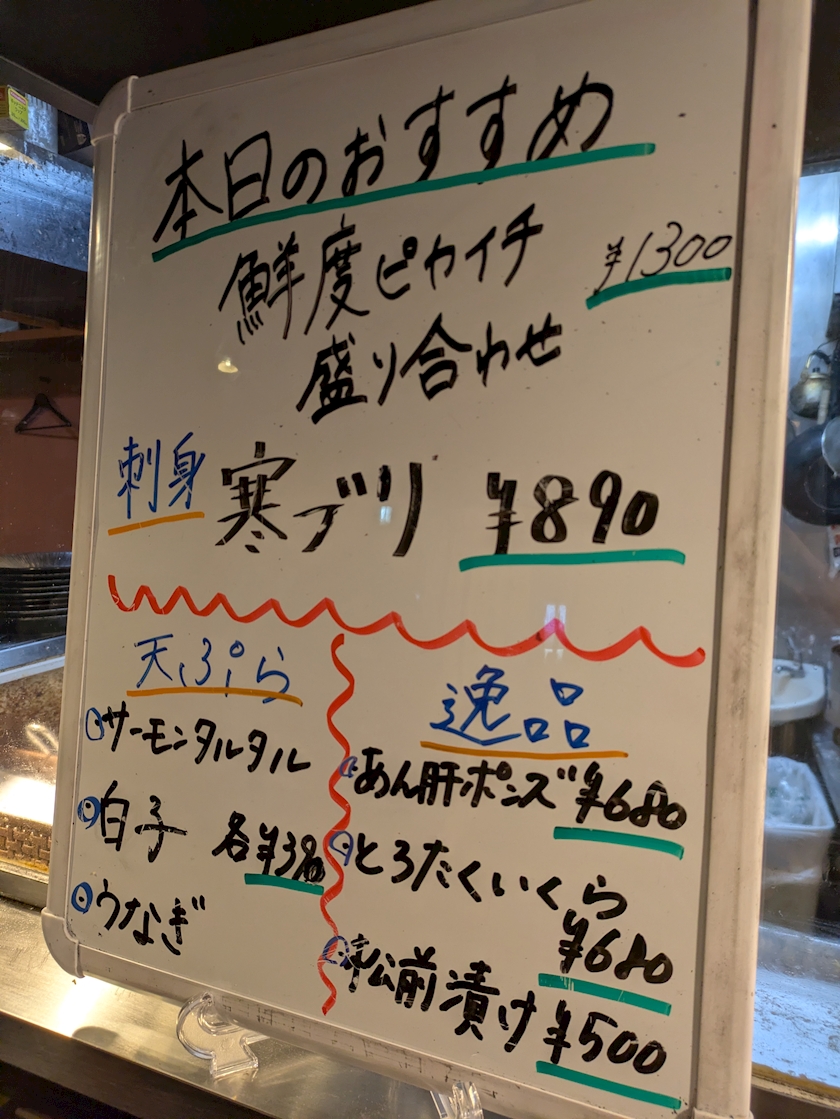 本日のおすすめ
鮮度ピカイチ ¥1300
盛り合わせ
刺身 寒ブリ ¥890
天ぷら
サーモンタルタル
白子 各¥380
うなぎ
逸品
あん肝ポンズ ¥680
とろたくいくら
¥680
松前漬け ¥500